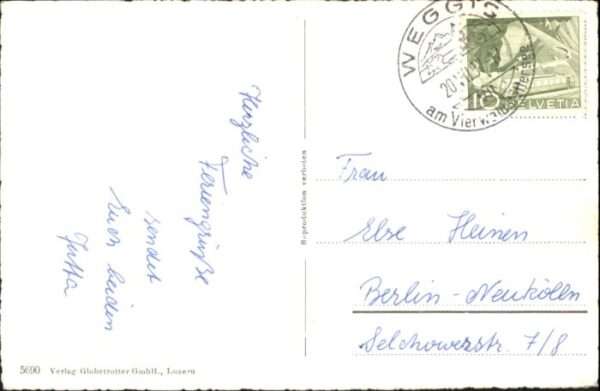 Herzliche
Feriengrüße
sendet
Euch beiden
Jutta
5690 Verlag Globetrotter GmbH., Luzern
Reproduktion verboten
WEGGIS
20.
am Vierwaldstättersee
10 HELVETIA
Frau
Else Heinen
Berlin-Neukölln
Selchowerstr. 7/8